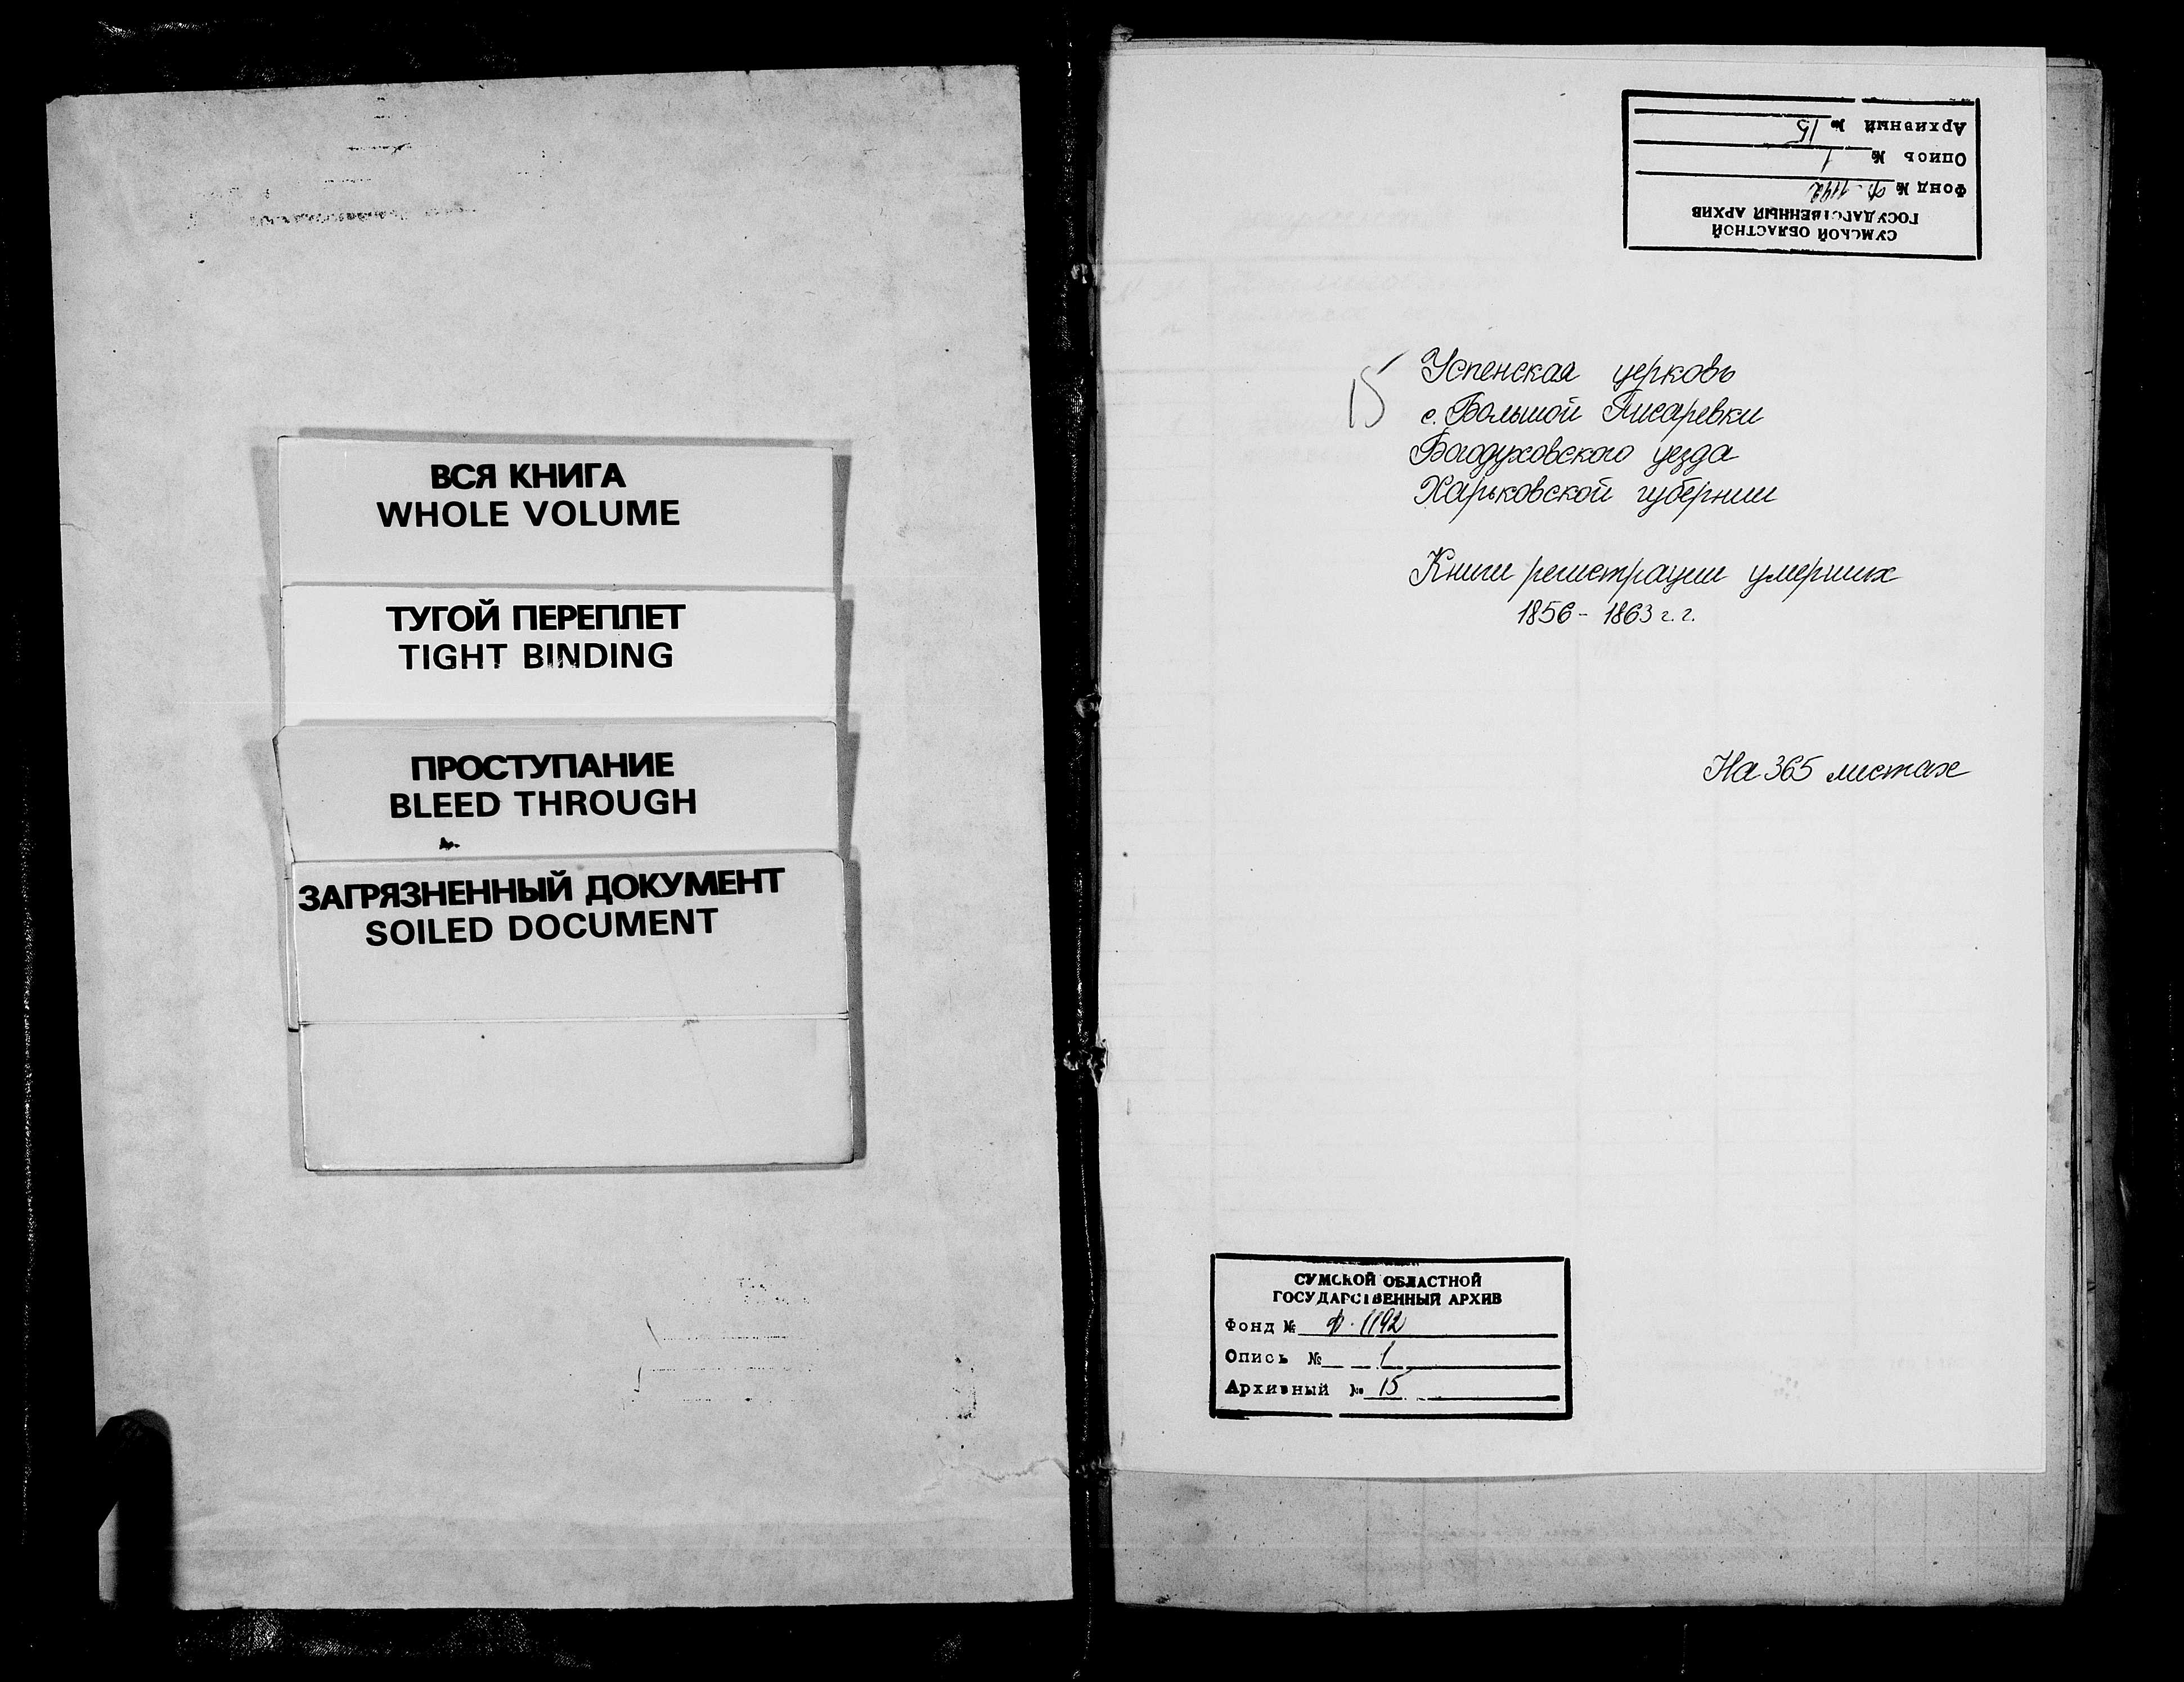 ВСЯ КНИГА
WHOLE VOLUME
ТУГОЙ ПЕРЕПЛЕТ
TIGHT BINDING
ПРОСТУПАНИЕ
BLEED THROUGH
ЗАГРЯЗНЕННЫЙ ДОКУМЕНТ
SOILED DOCUMENT
СУМСКОЙ ОБЛАСТНОЙ
ГОСУДАРСТВЕННЫЙ АРХИВ
Фонд № Ф-1192
Опись № 1
Архивный № 15
15
Успенская церковь
с. Большой Писаревки
Богодуховского уезда
Харьковской губернии
Книги регистрации умерших
1856 - 1863 г. г.
На 365 листах
СУМСКОЙ ОБЛАСТНОЙ
ГОСУДАРСТВЕННЫЙ АРХИВ
Фонд № Ф. 1192
Опись № 1
Архивный № 15